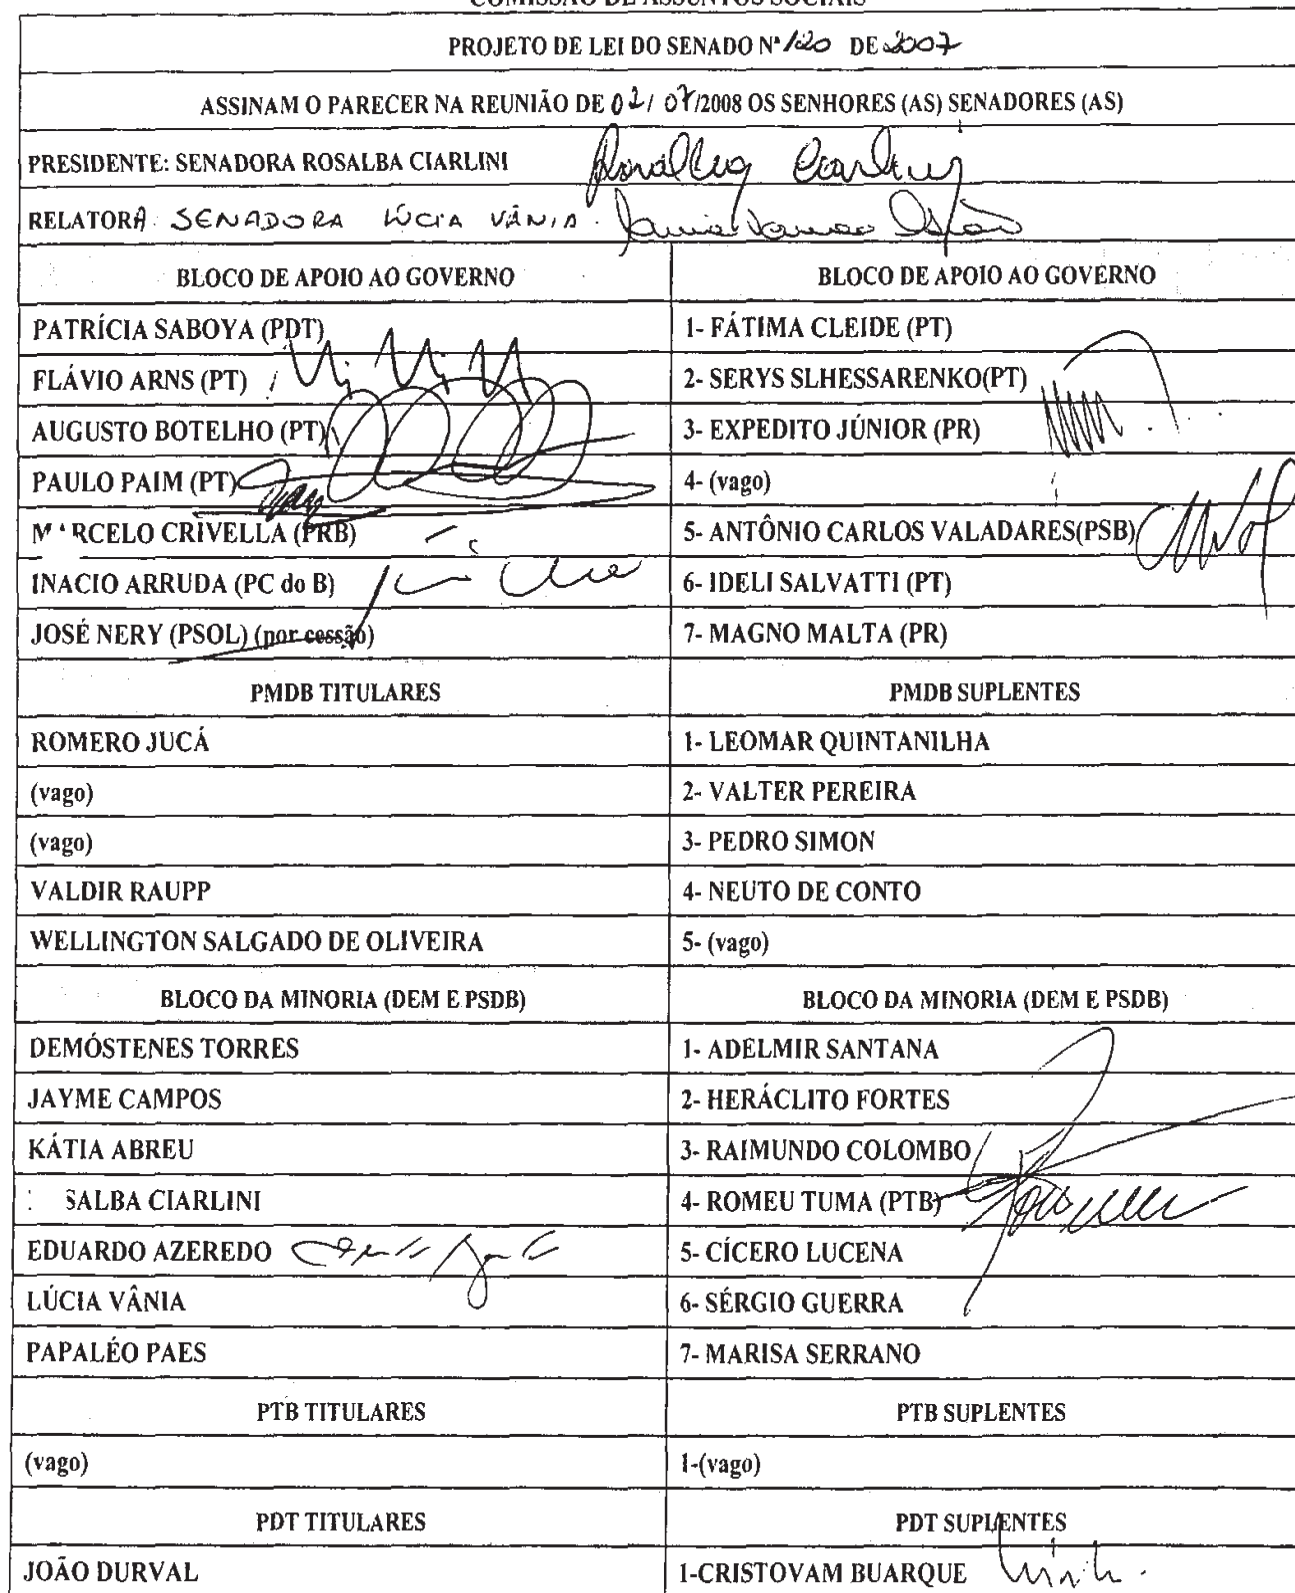 COMISSÃO DE ASSUNTOS SOCIAIS
PROJETO DE LEI DO SENADO Nº 120 DE 2007
ASSINAM O PARECER NA REUNIÃO DE 02 / 07 /2008 OS SENHORES (AS) SENADORES (AS)
PRESIDENTE: SENADORA ROSALBA CIARLINI
RELATORA: SENADORA LÚCIA VÂNIA.
BLOCO DE APOIO AO GOVERNO
BLOCO DE APOIO AO GOVERNO
PATRÍCIA SABOYA (PDT)
1- FÁTIMA CLEIDE (PT)
FLÁVIO ARNS (PT)
2- SERYS SLHESSARENKO(PT)
AUGUSTO BOTELHO (PT)
3- EXPEDITO JÚNIOR (PR)
PAULO PAIM (PT)
4- (vago)
MARCELO CRIVELLA (PRB)
5- ANTÔNIO CARLOS VALADARES(PSB)
INACIO ARRUDA (PC do B)
6- IDELI SALVATTI (PT)
JOSÉ NERY (PSOL) (por cessão)
7- MAGNO MALTA (PR)
PMDB TITULARES
PMDB SUPLENTES
ROMERO JUCÁ
1- LEOMAR QUINTANILHA
(vago)
2- VALTER PEREIRA
(vago)
3- PEDRO SIMON
VALDIR RAUPP
4- NEUTO DE CONTO
WELLINGTON SALGADO DE OLIVEIRA
5- (vago)
BLOCO DA MINORIA (DEM E PSDB)
BLOCO DA MINORIA (DEM E PSDB)
DEMÓSTENES TORRES
1- ADELMIR SANTANA
JAYME CAMPOS
2- HERÁCLITO FORTES
KÁTIA ABREU
3- RAIMUNDO COLOMBO
SALBA CIARLINI
4- ROMEU TUMA (PTB)
EDUARDO AZEREDO
5- CÍCERO LUCENA
LÚCIA VÂNIA
6- SÉRGIO GUERRA
PAPALÉO PAES
7- MARISA SERRANO
PTB TITULARES
PTB SUPLENTES
(vago)
1-(vago)
PDT TITULARES
PDT SUPLENTES
JOÃO DURVAL
1-CRISTOVAM BUARQUE